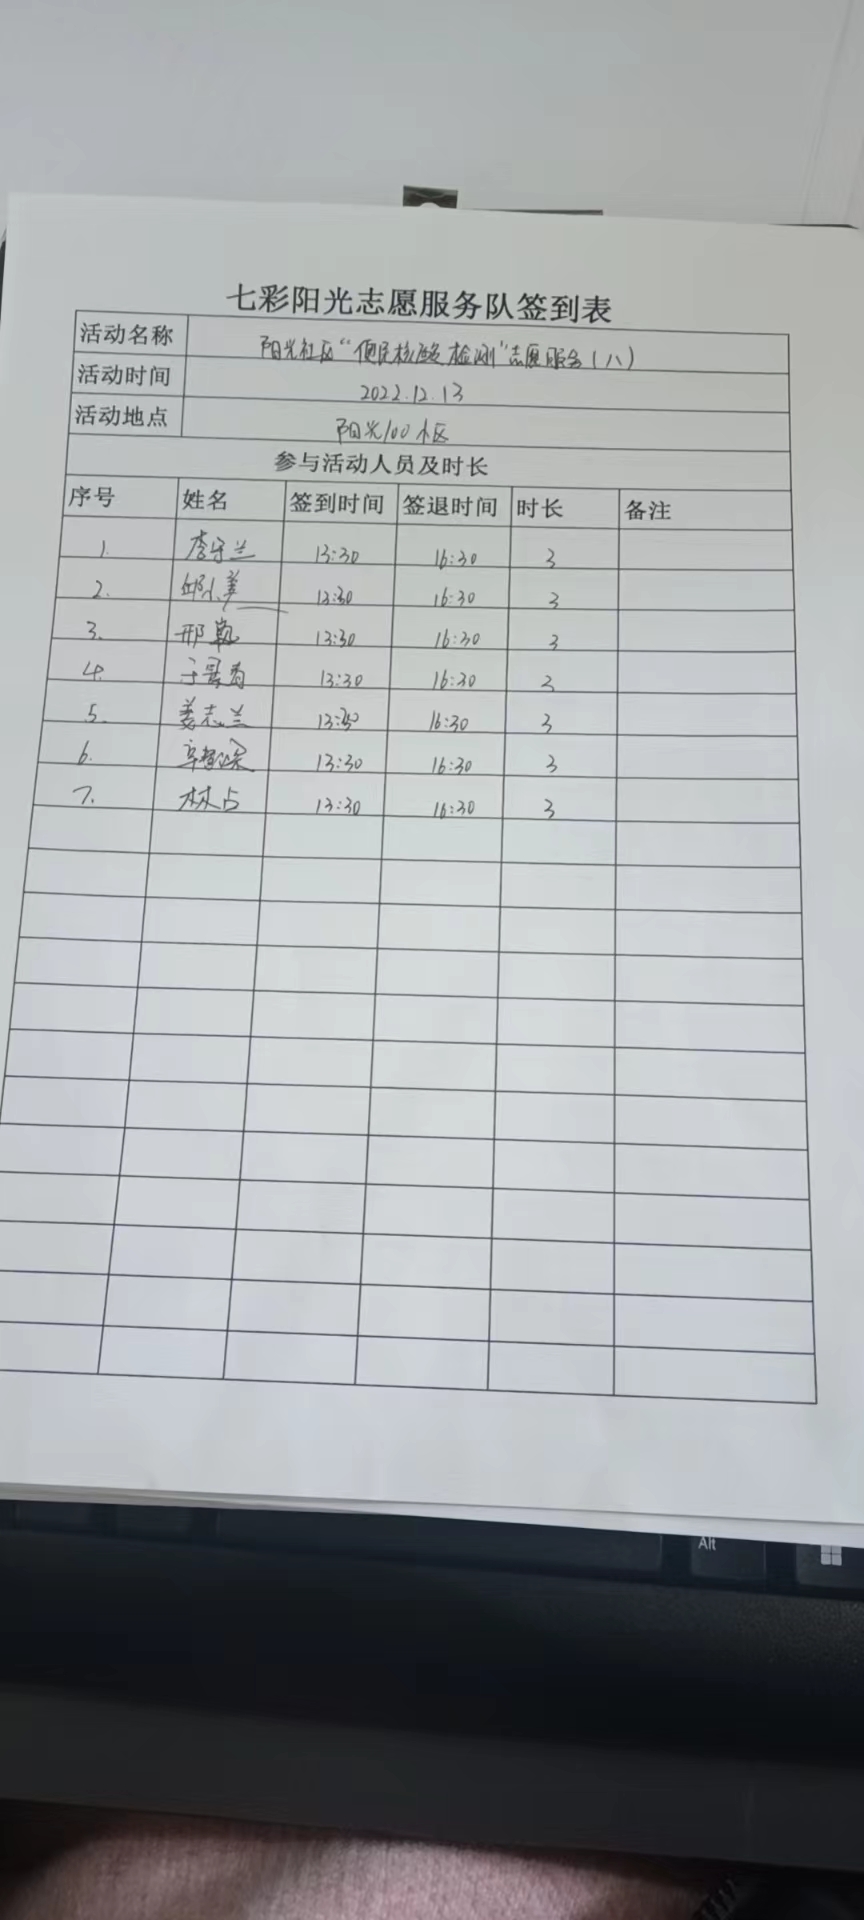 七彩阳光志愿服务队签到表
活动名称 阳光社区“便民核酸检测”志愿服务(八)
活动时间 2022.12.13
活动地点 阳光100小区
参与活动人员及时长
序号 姓名 签到时间 签退时间 时长 备注
1. 李守兰 13:30 16:30 3
2. 邱小美 13:30 16:30 3
3. 邢 13:30 16:30 3
4. 13:30 16:30 3
5. 姜志兰 13:30 16:30 3
6. 13:30 16:30 3
7. 林占 13:30 16:30 3
Alt